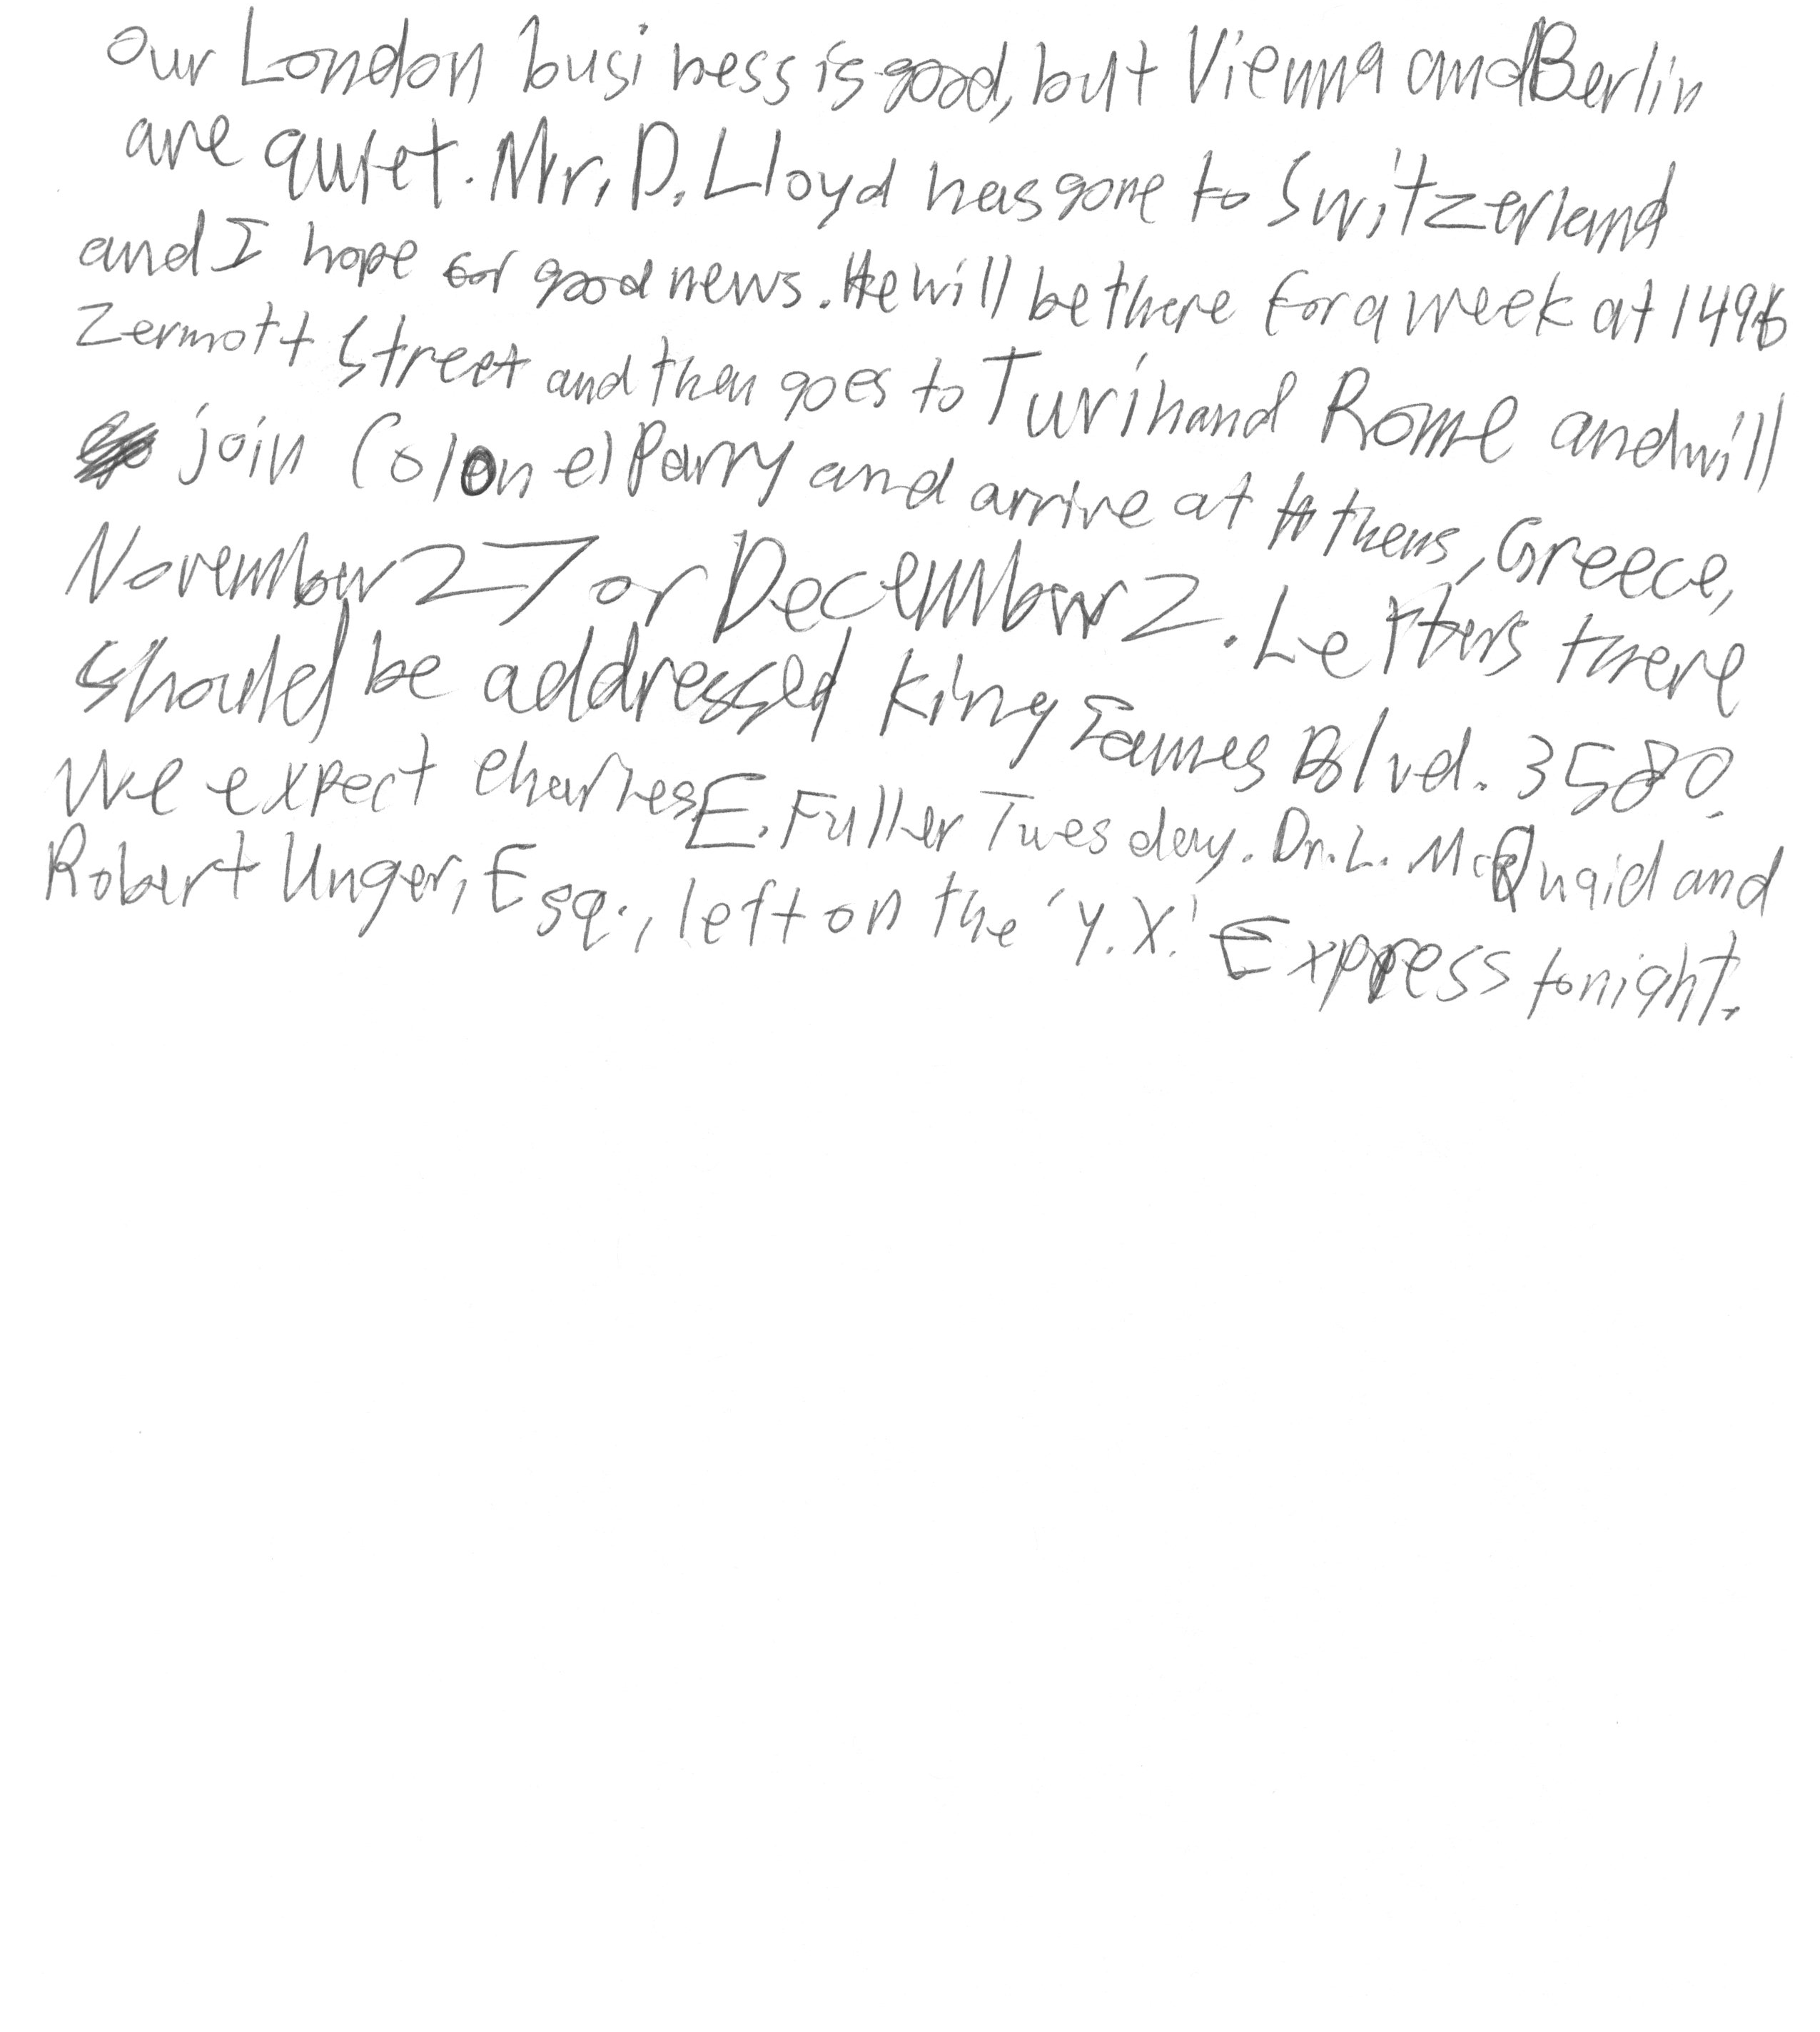 Our London business is good, but Vienna and Berlin
are quiet. Mr. D. Lloyd has gone to Switzerland
and I hope for good news. He will be there for a week at 1496
Zermott Street and then goes to Turin and Rome and will
join Colonel Parry and arrive at Athens, Greece,
November 27 or December 2. Letters there
should be addressed King James Blvd. 3580.
We expect Charles E. Fuller Tuesday. Dr. L. McQuaid and
Robert Unger, Esq., left on the 'Y.X.' Express tonight.